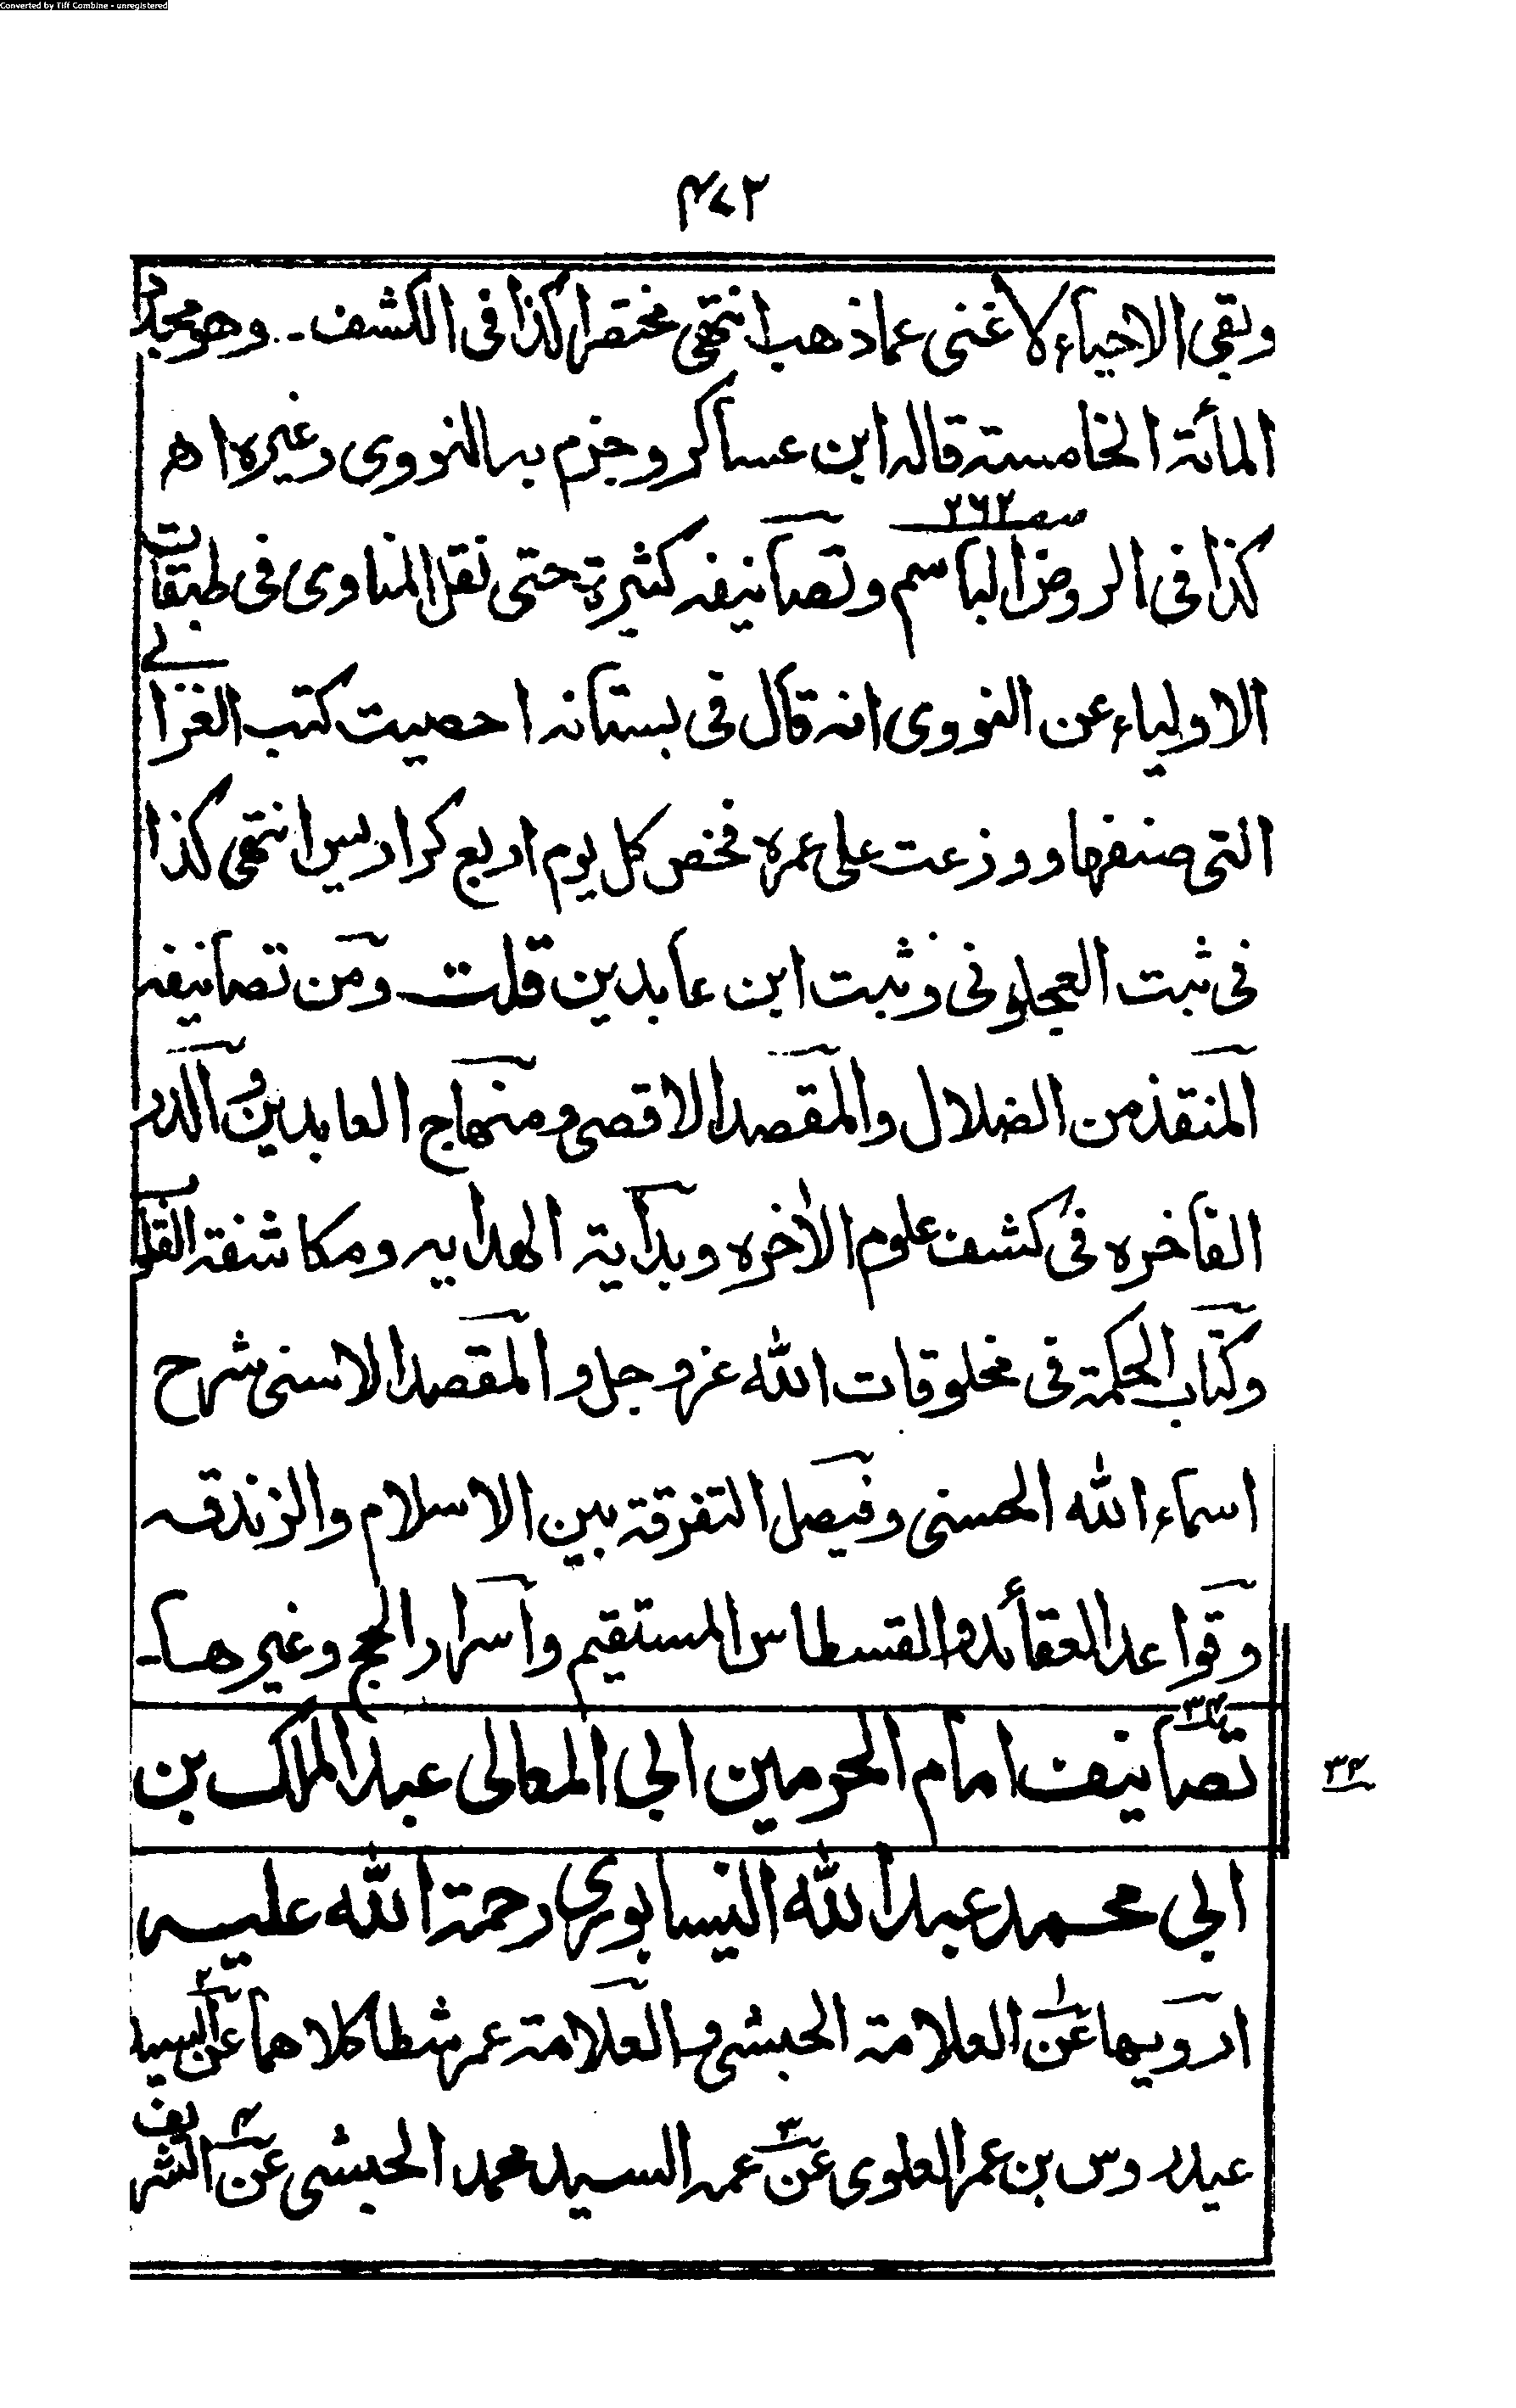 Converted by Tiff Combine - unregistered
٤٧٣
وبقي الاحياء لاغنى عماذهب انتهى مختصرا كذا فى الكشف ـ وهو مجدد
المأئة الخامسة قاله ابن عساكر وجزم به النووى وغيره اه
صـ ٢٦٢
كذا فى الروض الباسم وتصانيفه كثيرة حتى نقل المناوى فى طبقات
الاولياء عن النووى انه قال فى بستانه احصيت كتب الغزالى
التى صنفها ووزعت على عمره فخص كل يوم اربع كراريس انتهى كذا
فى ثبت العجلونى وثبت ابن عابدين قلت ومن تصانيفه
المنقذ من الضلال والمقصد الاقصى ومنهاج العابدين والدر
الفاخره فى كشف علوم الآخره وبداية الهدايه ومكاشفة القلوب
وكتاب الحكمة فى مخلوقات الله عزوجل والمقصد الاسنى شرح
اسماء الله الحسنى وفيصل التفرقة بين الاسلام والزندقه
وقواعد العقائد والقسطاس المستقيم واسرار الحج وغيرها ـ
٣٤
تصانيف امام الحرمين ابي المعالى عبد الملك بن
٣٤
ابي محمد عبد الله النيسابورى رحمة الله عليه
ارويها عن العلامة الحبشى والعلامة عمر شطا كلاهما عن السيد
عيدروس بن عمر العلوى عن عمه السيد محمد الحبشى عن الشريف